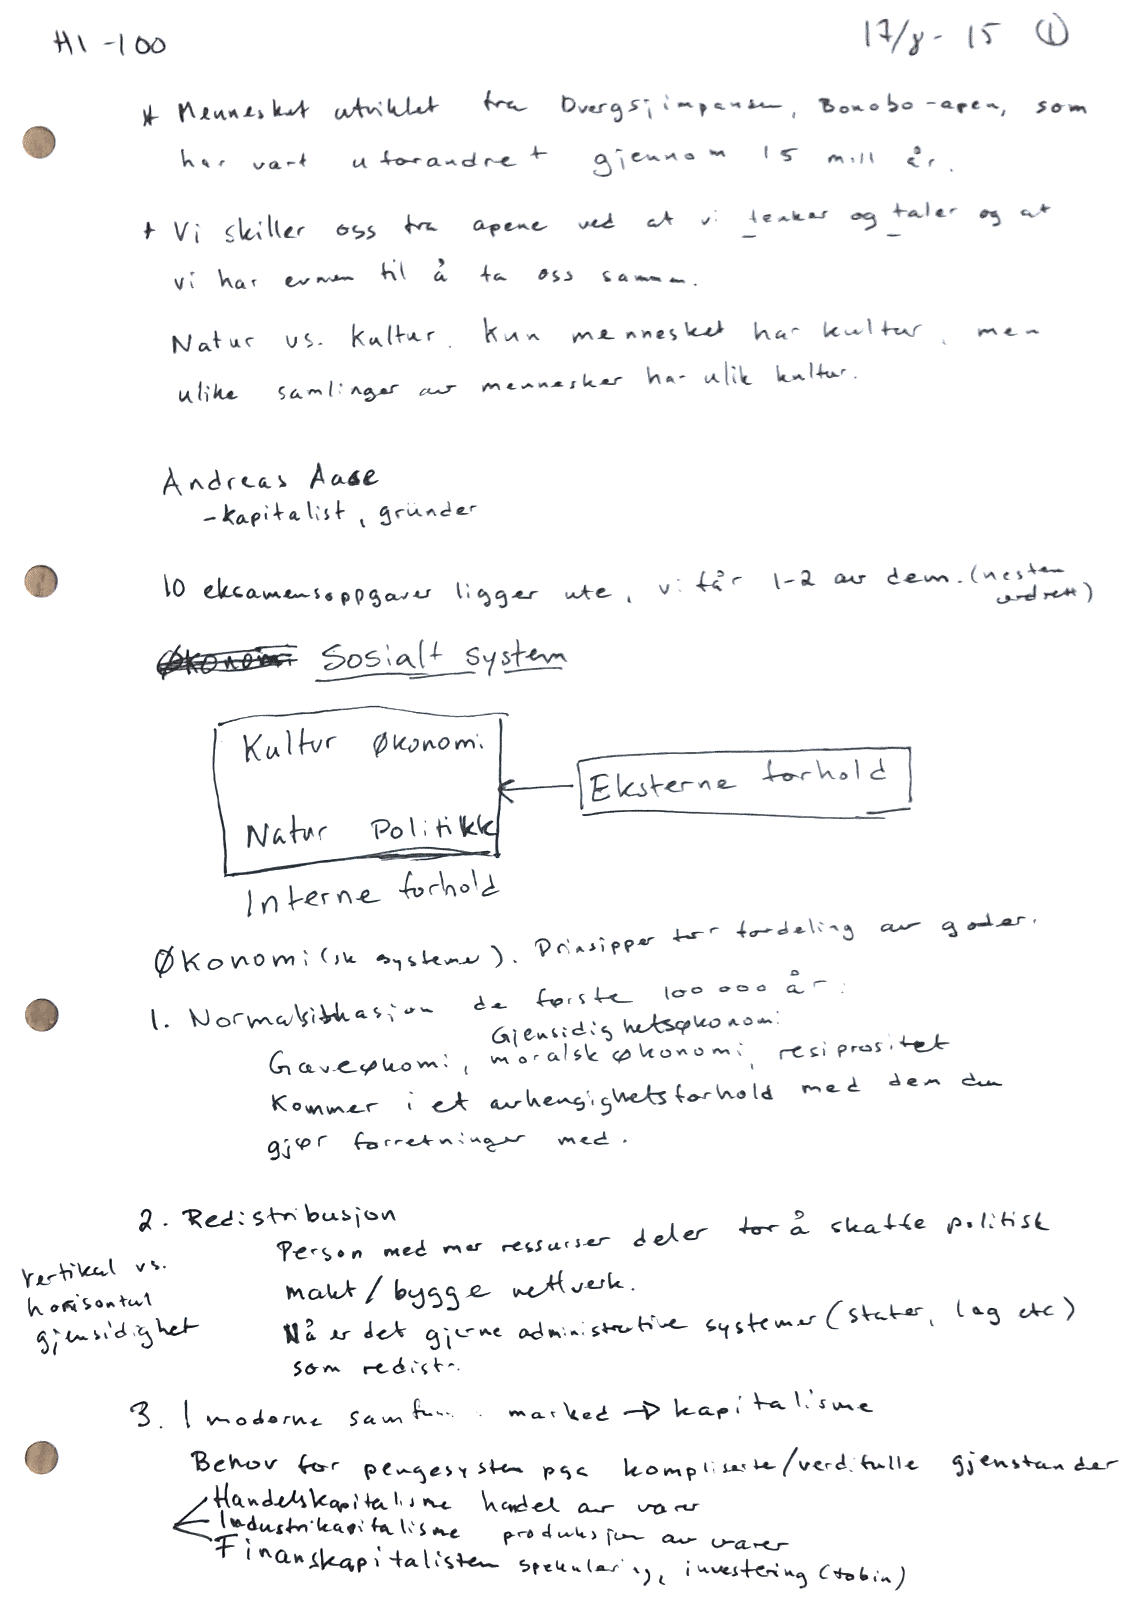 HI-100
17/8-15 (1)
* Mennesket utviklet fra Dvergsjimpansen, Bonobo-apen, som
har vært uforandret gjennom 15 mill år.
* Vi skiller oss fra apene ved at vi tenker og taler og at
vi har evnen til å ta oss sammen.
Natur vs. kultur. Kun mennesket har kultur, men
ulike samlinger av mennesker har ulik kultur.
Andreas Aase
- kapitalist, gründer
10 eksamensoppgaver ligger ute, vi får 1-2 av dem. (nesten
ordrett)
Økonomi Sosialt system
Kultur Økonomi
Eksterne forhold
Natur Politikk
Interne forhold
Økonomi(sk systemer). Prinsipper for fordeling av goder.
1. Normalsituasjon de første 100 000 år:
Gjensidighetsøkonomi
Gaveøkomi, moralsk økonomi, resiprositet
Kommer i et avhengighetsforhold med dem du
gjør forretninger med.
2. Redistribusjon
Person med mer ressurser deler for å skaffe politisk
makt/bygge nettverk.
Nå er det gjerne administrative systemer (stater, lag etc)
som redistr.
vertikal vs.
horisontal
gjensidighet
3. I moderne samfunn: marked → kapitalisme
Behov for pengesystem pga kompliserte/verdifulle gjenstander
Handelskapitalisme handel av varer
Industrikapitalisme produksjon av varer
Finanskapitalisten spekulering, investering (tobin)